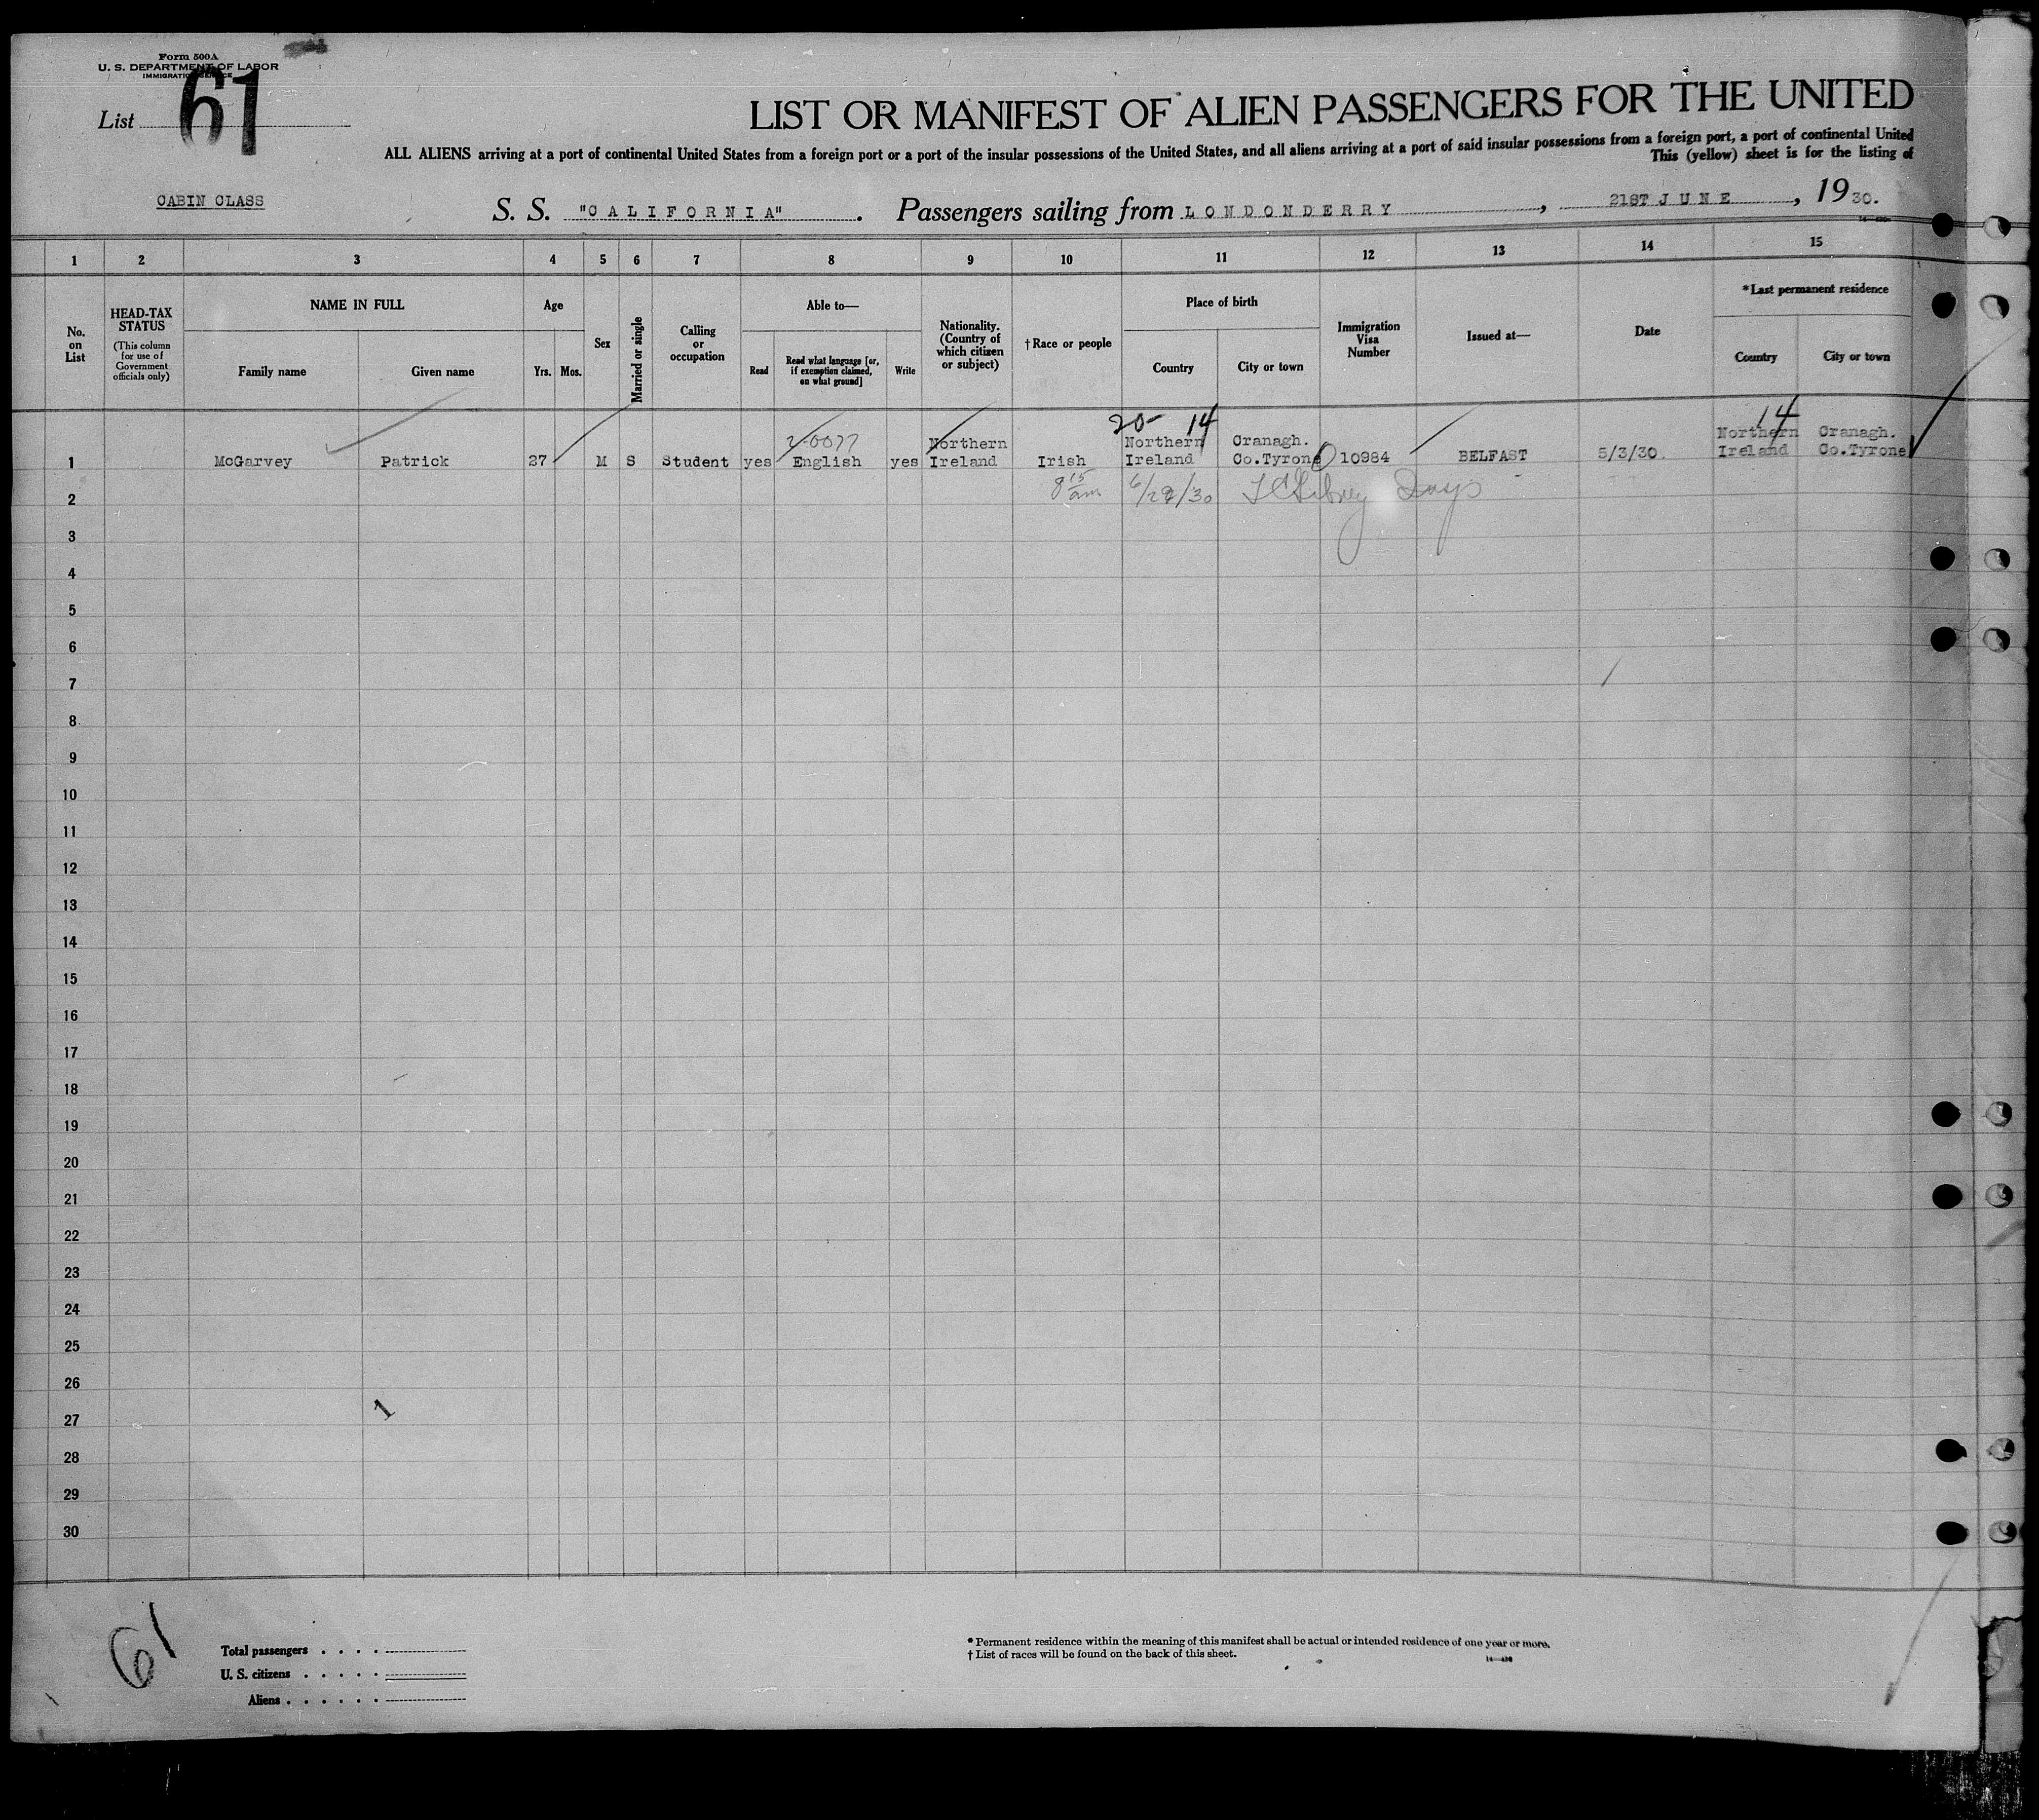 Form 500A
U. S. DEPARTMENT OF LABOR
IMMIGRATION SERVICE
List 61
LIST OR MANIFEST OF ALIEN PASSENGERS FOR THE UNITED
ALL ALIENS arriving at a port of continental United States from a foreign port or a port of the insular possessions of the United States, and all aliens arriving at a port of said insular possessions from a foreign port, a port of continental United
This (yellow) sheet is for the listing of
CABIN CLASS
S. S. "CALIFORNIA". Passengers sailing from LONDONDERRY, 21ST JUNE, 1930.
1 2 3 4 5 6 7 8 9 10 11 12 13 14 15
No. on List
HEAD-TAX STATUS
(This column for use of Government officials only)
NAME IN FULL
Family name
Given name
Age
Yrs. Mos.
Sex
Married or single
Calling or occupation
Able to—
Read
Read what language [or, if exemption claimed, on what ground]
Write
Nationality. (Country of which citizen or subject)
† Race or people
Place of birth
Country
City or town
Immigration Visa Number
Issued at—
Date
*Last permanent residence
Country
City or town
2-0077
20- 14
14
1 McGarvey Patrick 27 M S Student yes English yes Northern Ireland Irish Northern Ireland Cranagh. Co.Tyrone 10984 BELFAST 5/3/30. Northern Ireland Cranagh. Co.Tyrone
2 8 15 am 6/29/30
3
4
5
6
7
8
9
10
11
12
13
14
15
16
17
18
19
20
21
22
23
24
25
26
27
28
29
30
1
61
Total passengers . . . .
U. S. citizens . . . . .
Aliens . . . . . .
* Permanent residence within the meaning of this manifest shall be actual or intended residence of one year or more.
† List of races will be found on the back of this sheet.